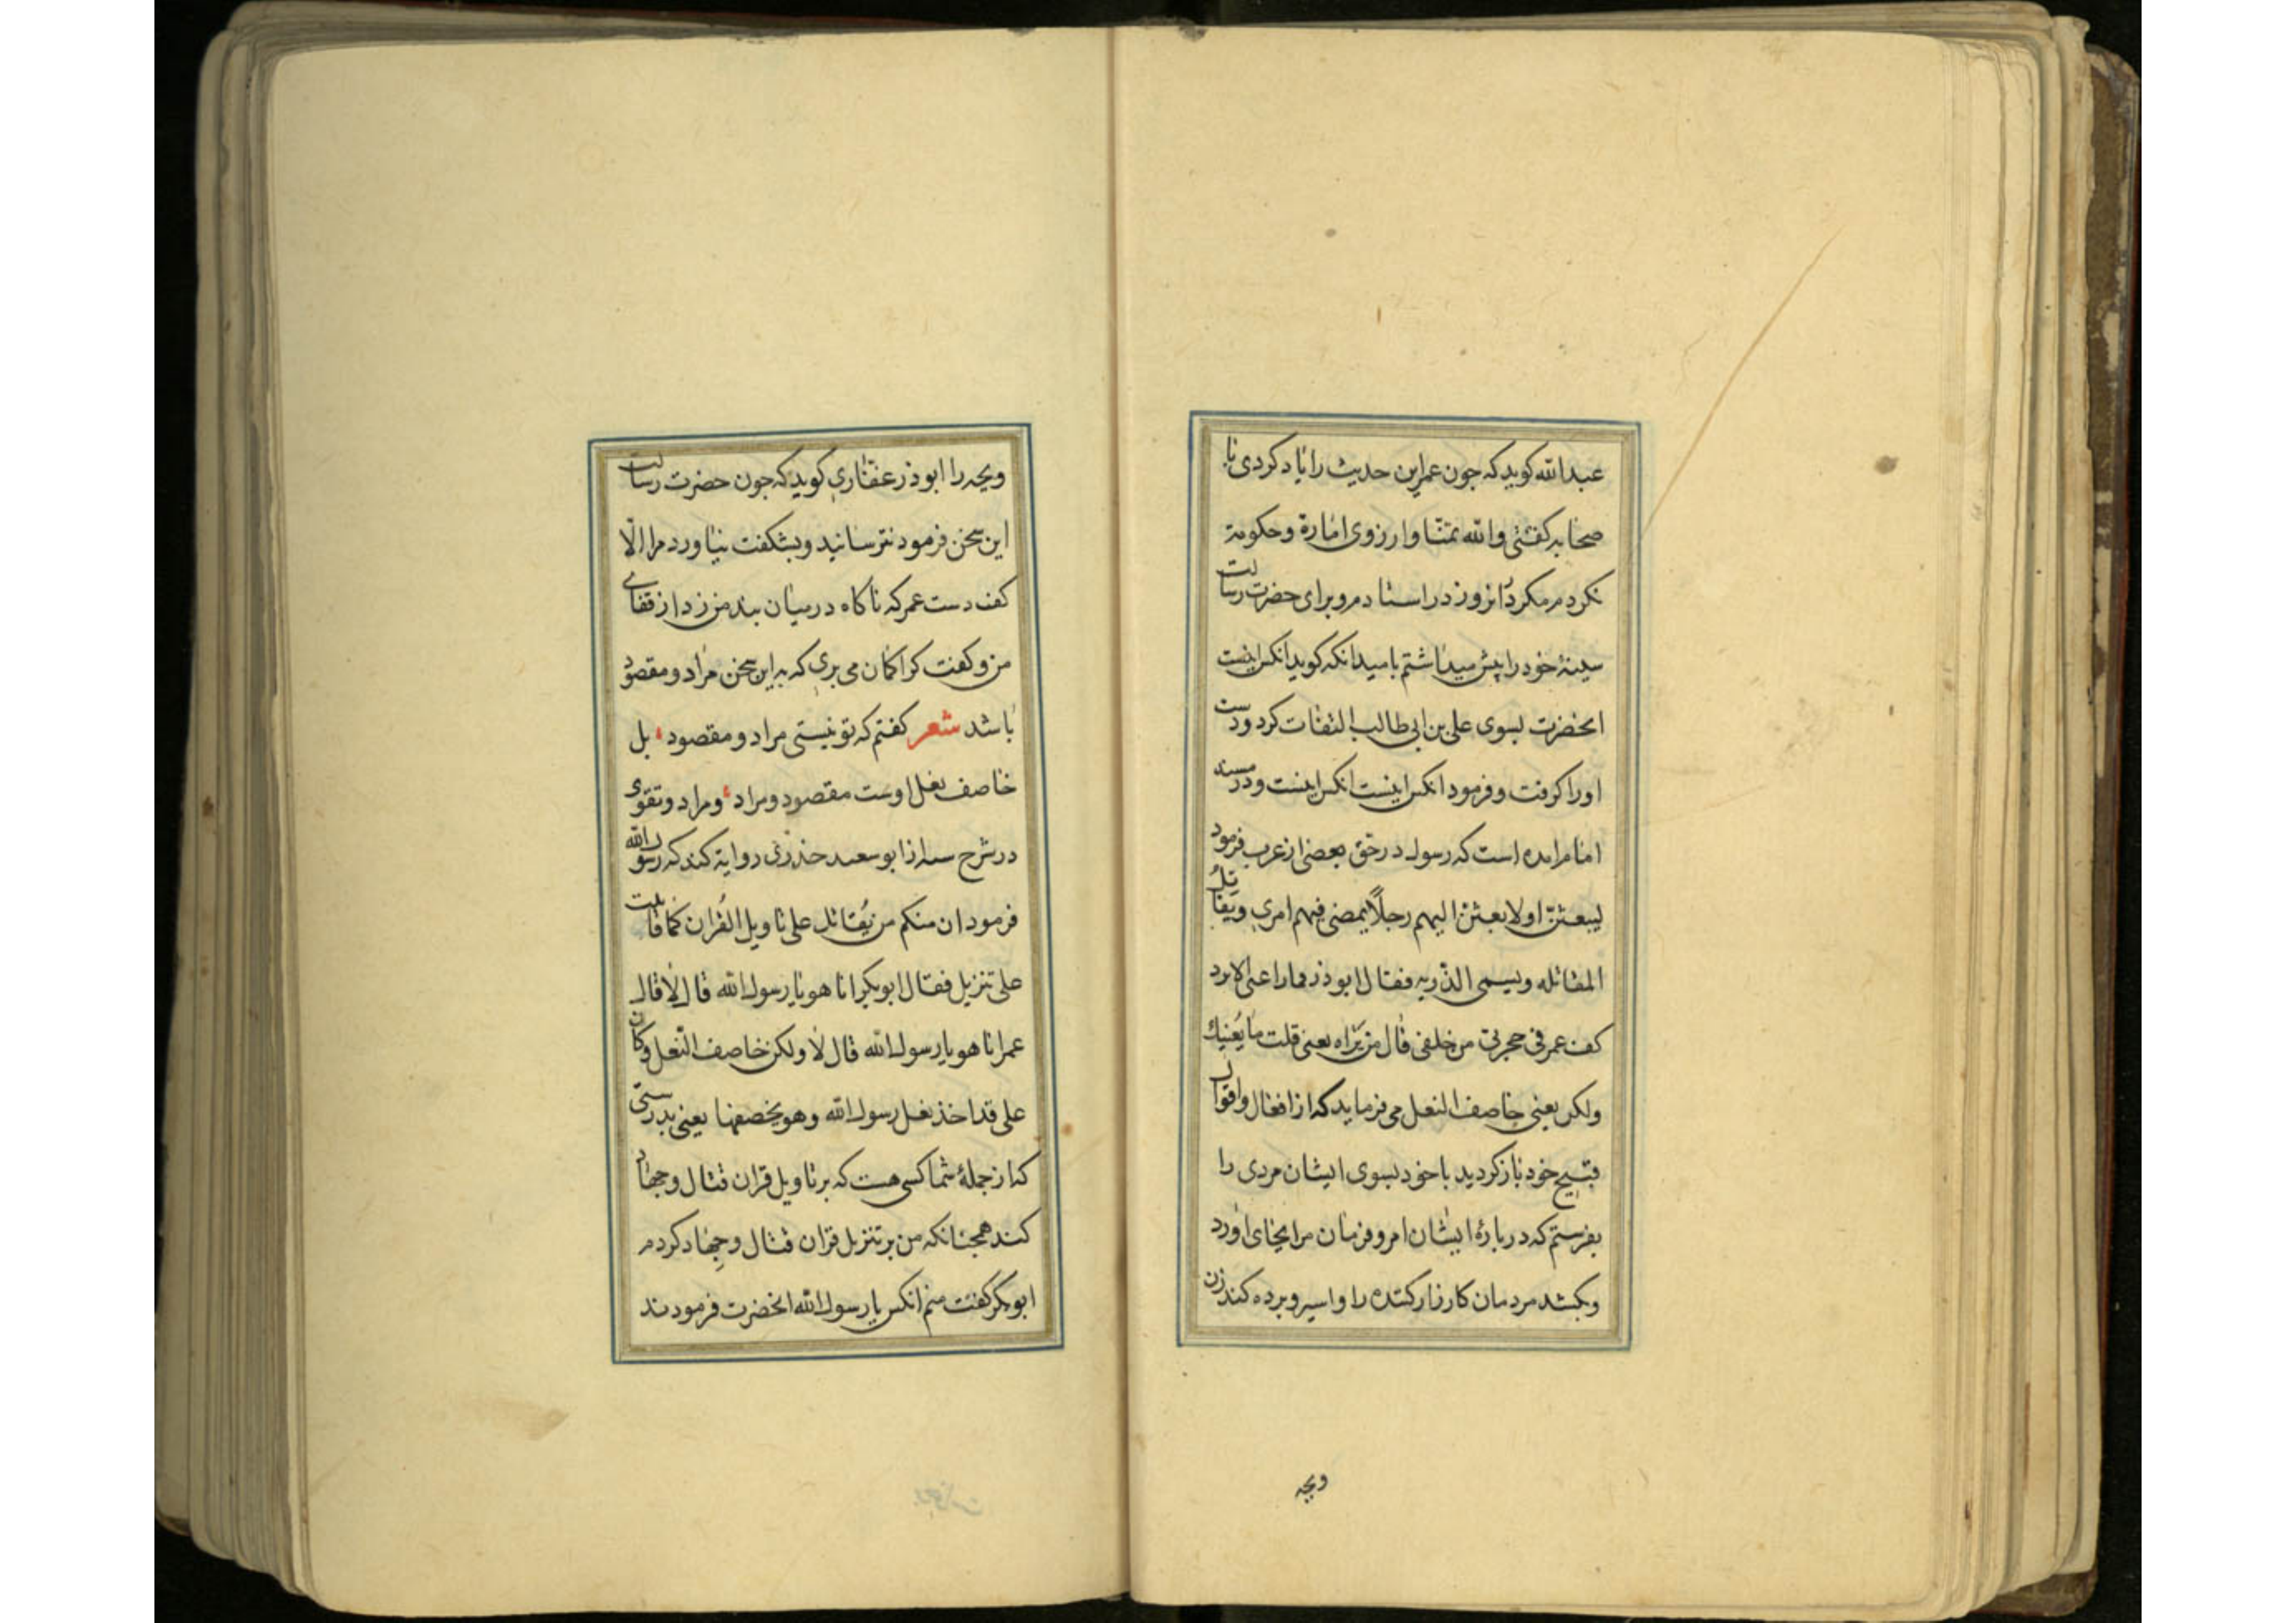 عبدالله کوید که جون عمر این حدیث را یاد کردی با
صحابه کفتی والله تمنا وارزوی امارة وحکومة
نکردم مکر دانروز در استادم وبرای حضرت رسالت
سینهٔ خود را پیش میداشتم بامید انکه کوید انکس اینست
انحضرت بسوی علی بن ابی طالب التفات کرد ودست
اورا کرفت وفرمود انکس اینست انکس اینست ودر مسند
امام امده است که رسول در حق بعضی از عرب فرمود
لیبعثنّ اولابعثنّ الیهم رجلاً یمضی فیهم امری ویقاتل
المقاتله ویسبی الذریه فقال ابوذر فما راعنی الا برد
کف عمر فی حجرتی من خلفی قال من تراه یعنی قلت ما یعنیك
ولکن یعنی خاصف النعل می فرماید که از افعال واقوال
قبیح خود باز کردید یا خود بسوی ایشان مردی را
بفرستم که در بارهٔ ایشان امر وفرمان مرا بجای اورد
وبکشد مردمان کارزار کننده را واسیر وبرده کند زن
وبچه
وبچه را ابوذر غفاری کوید که جون حضرت رسالت
این سخن فرمود نترسانید وبشکفت نیاورد مرا الّا
کف دست عمر که ناکاه در میان بند من زد از قفای
من وکفت کرا کمان می بری که به این سخن مراد ومقصود
باشد شعر کفتم که تو نیستی مراد ومقصود ، بل
خاصف نعل اوست مقصود ومراد ، ومراد وتقوی
در شرح سنه از ابو سعید خدری روایة کند که رسول الله
فرمود ان منکم من یُقاتل علی تاویل القُران کما قاتلت
علی تنزیل فقال ابوبکر انا هو یا رسول الله قال لا قال
عمر انا هو یا رسول الله قال لا ولکن خاصف النعل وکان
علی قد اخذ نعل رسول الله وهو یخصفها یعنی بدرستی
که از جملهٔ شما کسی هست که بر تاویل قران قتال وجهاد
کند همجنانکه من بر تنزیل قران قتال وجهاد کردم
ابوبکر کفت منم انکس یا رسول الله انحضرت فرمودند